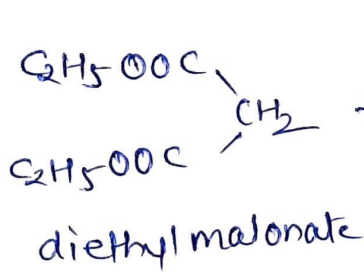 C2H5OOC
CH2
C2H5OOC
diethyl malonate